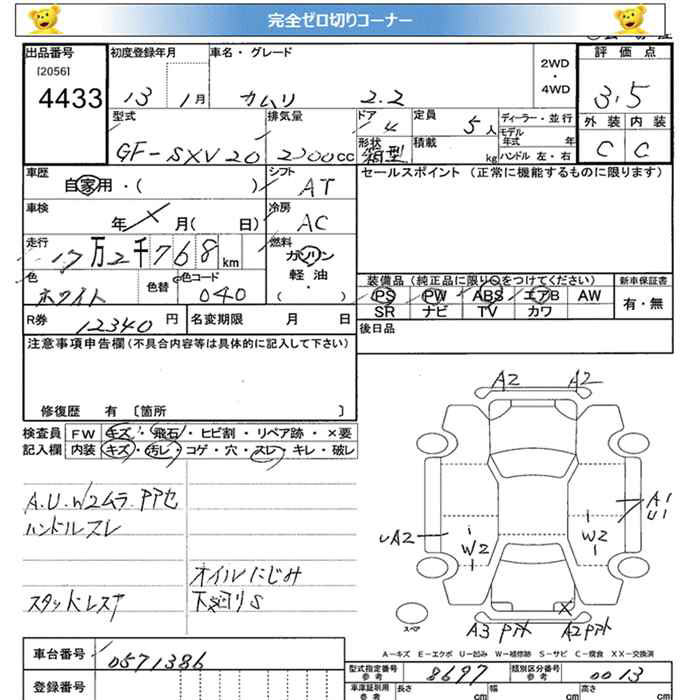 完全ゼロ切りコーナー
出品番号 初度登録年月 車名・グレード 評価点
[2056]
4433 13 1月 カムリ 2.2 2WD・4WD 3.5
型式 排気量 ドア 4 定員 5人 ディーラー・並行 外装 内装
GF-SXV20 2200cc 形状 箱型 積載 kg モデル年式 年 ハンドル 左・右 C C
車歴 自家用・( ) シフト AT セールスポイント(正常に機能するものに限ります)
車検 年 月( 日) 冷房 AC
走行 17万2千768km 燃料 ガソリン 軽油 (・)
色 ホワイト 色替 色コード 040
装備品(純正品に限り○をつけてください) 新車保証書
PS PW ABS エアB AW 有・無
SR ナビ TV カワ
R券 12340円 名変期限 月 日 後日品
注意事項申告欄(不具合内容等は具体的に記入して下さい)
修復歴 有 〔箇所 〕
検査員 FW キズ・飛石・ヒビ割・リペア跡・×要
記入欄 内装 キズ・汚レ・コゲ・穴・スレ・キレ・破レ
A2 A2
A.U.W2ムラ.PPセ
ハンドルスレ
A1
U1
UA2 W2 W2
オイルにじみ
スタッドレス 下廻りS
スペア A3 A2 X
A-キズ E-エクボ U-凹み W-補修跡 S-サビ C-腐食 XX-交換済
車台番号 0571386 型式指定番号 参考 8697 類別区分番号 参考 0013
登録番号 車庫証明用 参考 長さ cm 幅 cm 高さ cm